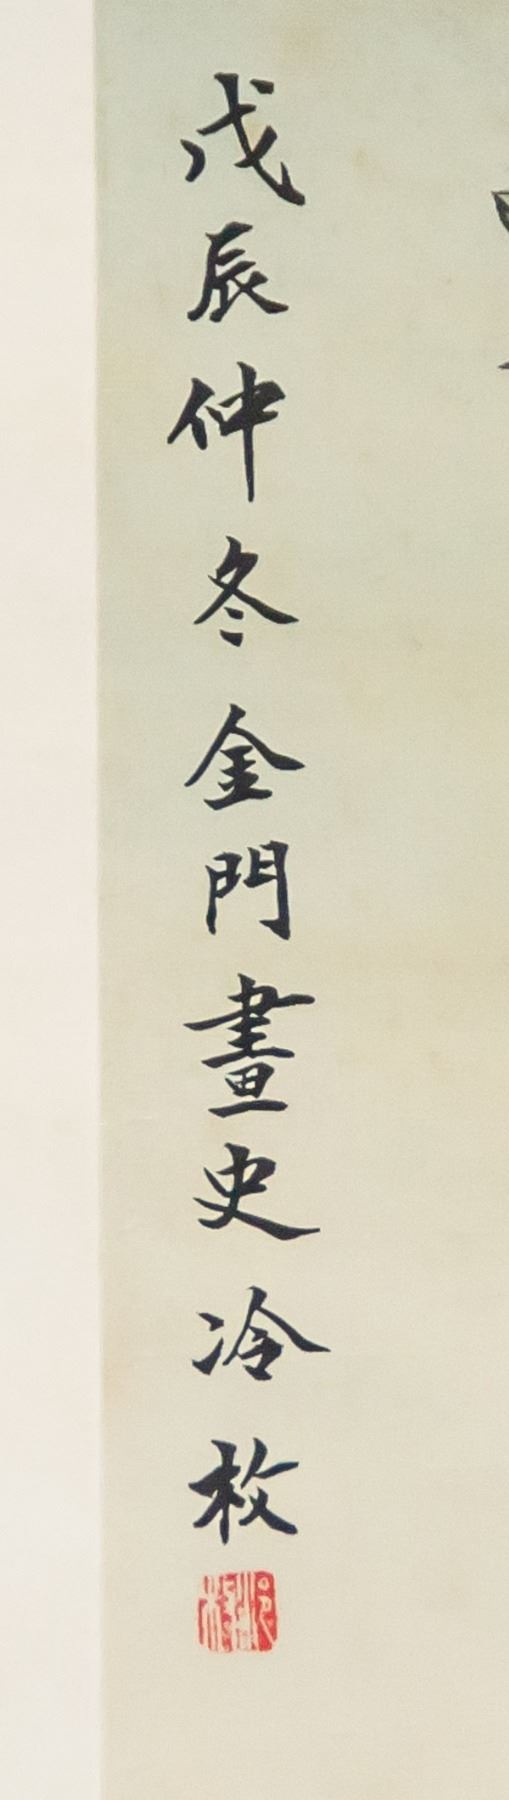 戊辰仲冬金門畫史冷枚
冷枚